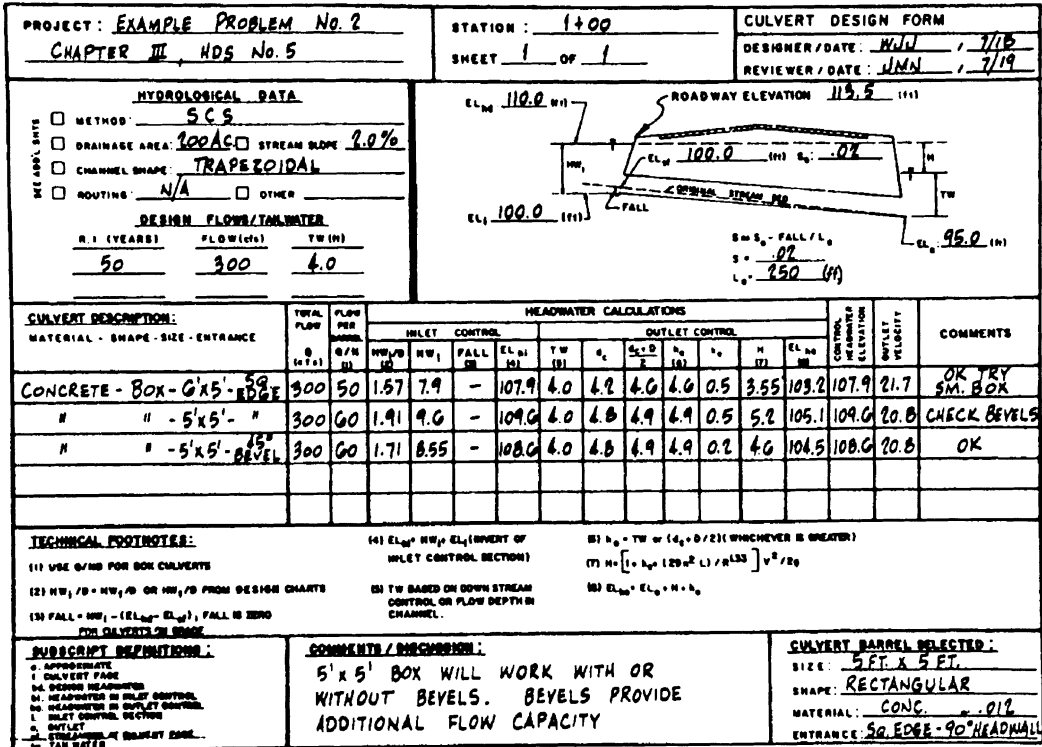 PROJECT: EXAMPLE PROBLEM NO. 2
CHAPTER III, HDS No. 5
STATION: 1+00
SHEET 1 OF 1
CULVERT DESIGN FORM
DESIGNER/DATE: WJJ, 7/18
REVIEWER/DATE: JMN, 7/19
HYDROLOGICAL DATA
SEE ADD'L SHTS
METHOD: SCS
DRAINAGE AREA: 200 AC. STREAM SLOPE 2.0%
CHANNEL SHAPE: TRAPEZOIDAL
ROUTING: N/A OTHER
DESIGN FLOWS/TAILWATER
R.I. (YEARS) FLOW(cfs) TW (ft)
50 300 4.0
EL hd 110.0 (ft)
ROADWAY ELEVATION 113.5 (ft)
EL sf 100.0 (ft) S o .02
HW i
H
TW
ORIGINAL STREAM BED
EL i 100.0 (ft)
FALL
S = S o - FALL / L a
S = .02
L a = 250 (ft)
EL o 95.0 (ft)
CULVERT DESCRIPTION:
MATERIAL - SHAPE - SIZE - ENTRANCE
TOTAL FLOW Q (cfs)
FLOW PER BARREL Q/N (1)
HEADWATER CALCULATIONS
INLET CONTROL
OUTLET CONTROL
HW i/D (2) HW i FALL (3) EL hi (4) TW (5) d c d c + D 2 h o (6) k e H (7) EL ho (8)
CONTROL HEADWATER ELEVATION
OUTLET VELOCITY
COMMENTS
CONCRETE - BOX - 6'x5' - SQ EDGE 300 50 1.57 7.9 - 107.9 4.0 4.2 4.6 4.6 0.5 3.55 103.2 107.9 21.7 OK TRY SM. BOX
" " - 5'x5' - " 300 60 1.91 9.6 - 109.6 4.0 4.8 4.9 4.9 0.5 5.2 105.1 109.6 20.8 CHECK BEVELS
" " - 5'x5' - 45° BEVEL 300 60 1.71 8.55 - 108.6 4.0 4.8 4.9 4.9 0.2 4.6 104.5 108.6 20.8 OK
TECHNICAL FOOTNOTES:
(1) USE Q/NB FOR BOX CULVERTS
(2) HW i /D = HW i /D OR HW i /D FROM DESIGN CHARTS
(3) FALL = HW i - (EL hd - EL sf); FALL IS ZERO
FOR CULVERTS ON GRADE
(4) EL hi = HW i + EL i (INVERT OF
INLET CONTROL SECTION)
(5) TW BASED ON DOWN STREAM
CONTROL OR FLOW DEPTH IN
CHANNEL.
(6) h o = TW or (d c + D/2) (WHICHEVER IS GREATER)
(7) H = [1 + k e + (29 n² L) / R 1.33] V² / 2g
(8) EL ho = EL o + H + h o
SUBSCRIPT DEFINITIONS:
a. APPROXIMATE
f. CULVERT FACE
hd. DESIGN HEADWATER
hi. HEADWATER IN INLET CONTROL
ho. HEADWATER IN OUTLET CONTROL
i. INLET CONTROL SECTION
o. OUTLET
sf. STREAMBED AT CULVERT FACE
tw. TAIL WATER
COMMENTS / DISCUSSION:
5'x 5' BOX WILL WORK WITH OR
WITHOUT BEVELS. BEVELS PROVIDE
ADDITIONAL FLOW CAPACITY
CULVERT BARREL SELECTED:
SIZE: 5 FT. X 5 FT.
SHAPE: RECTANGULAR
MATERIAL: CONC. n .012
ENTRANCE: SQ. EDGE - 90° HEADWALL